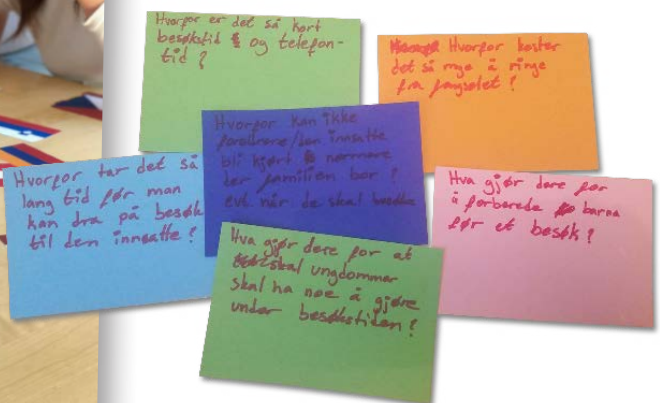 Hvorfor er det så kort
besøkstid og telefon-
tid ?
Hvorfor koster
det så mye å ringe
fra fengselet ?
Hvorfor kan ikke
foreldrene/den innsatte
bli kjørt nærmere
der familien bor ?
evt når de skal besøke
Hvorfor tar det så
lang tid før man
kan dra på besøk
til den innsatte ?
Hva gjør dere for
å forberede barna
før et besøk ?
Hva gjør dere for at
skal ungdommer
skal ha noe å gjøre
under besøkstiden ?